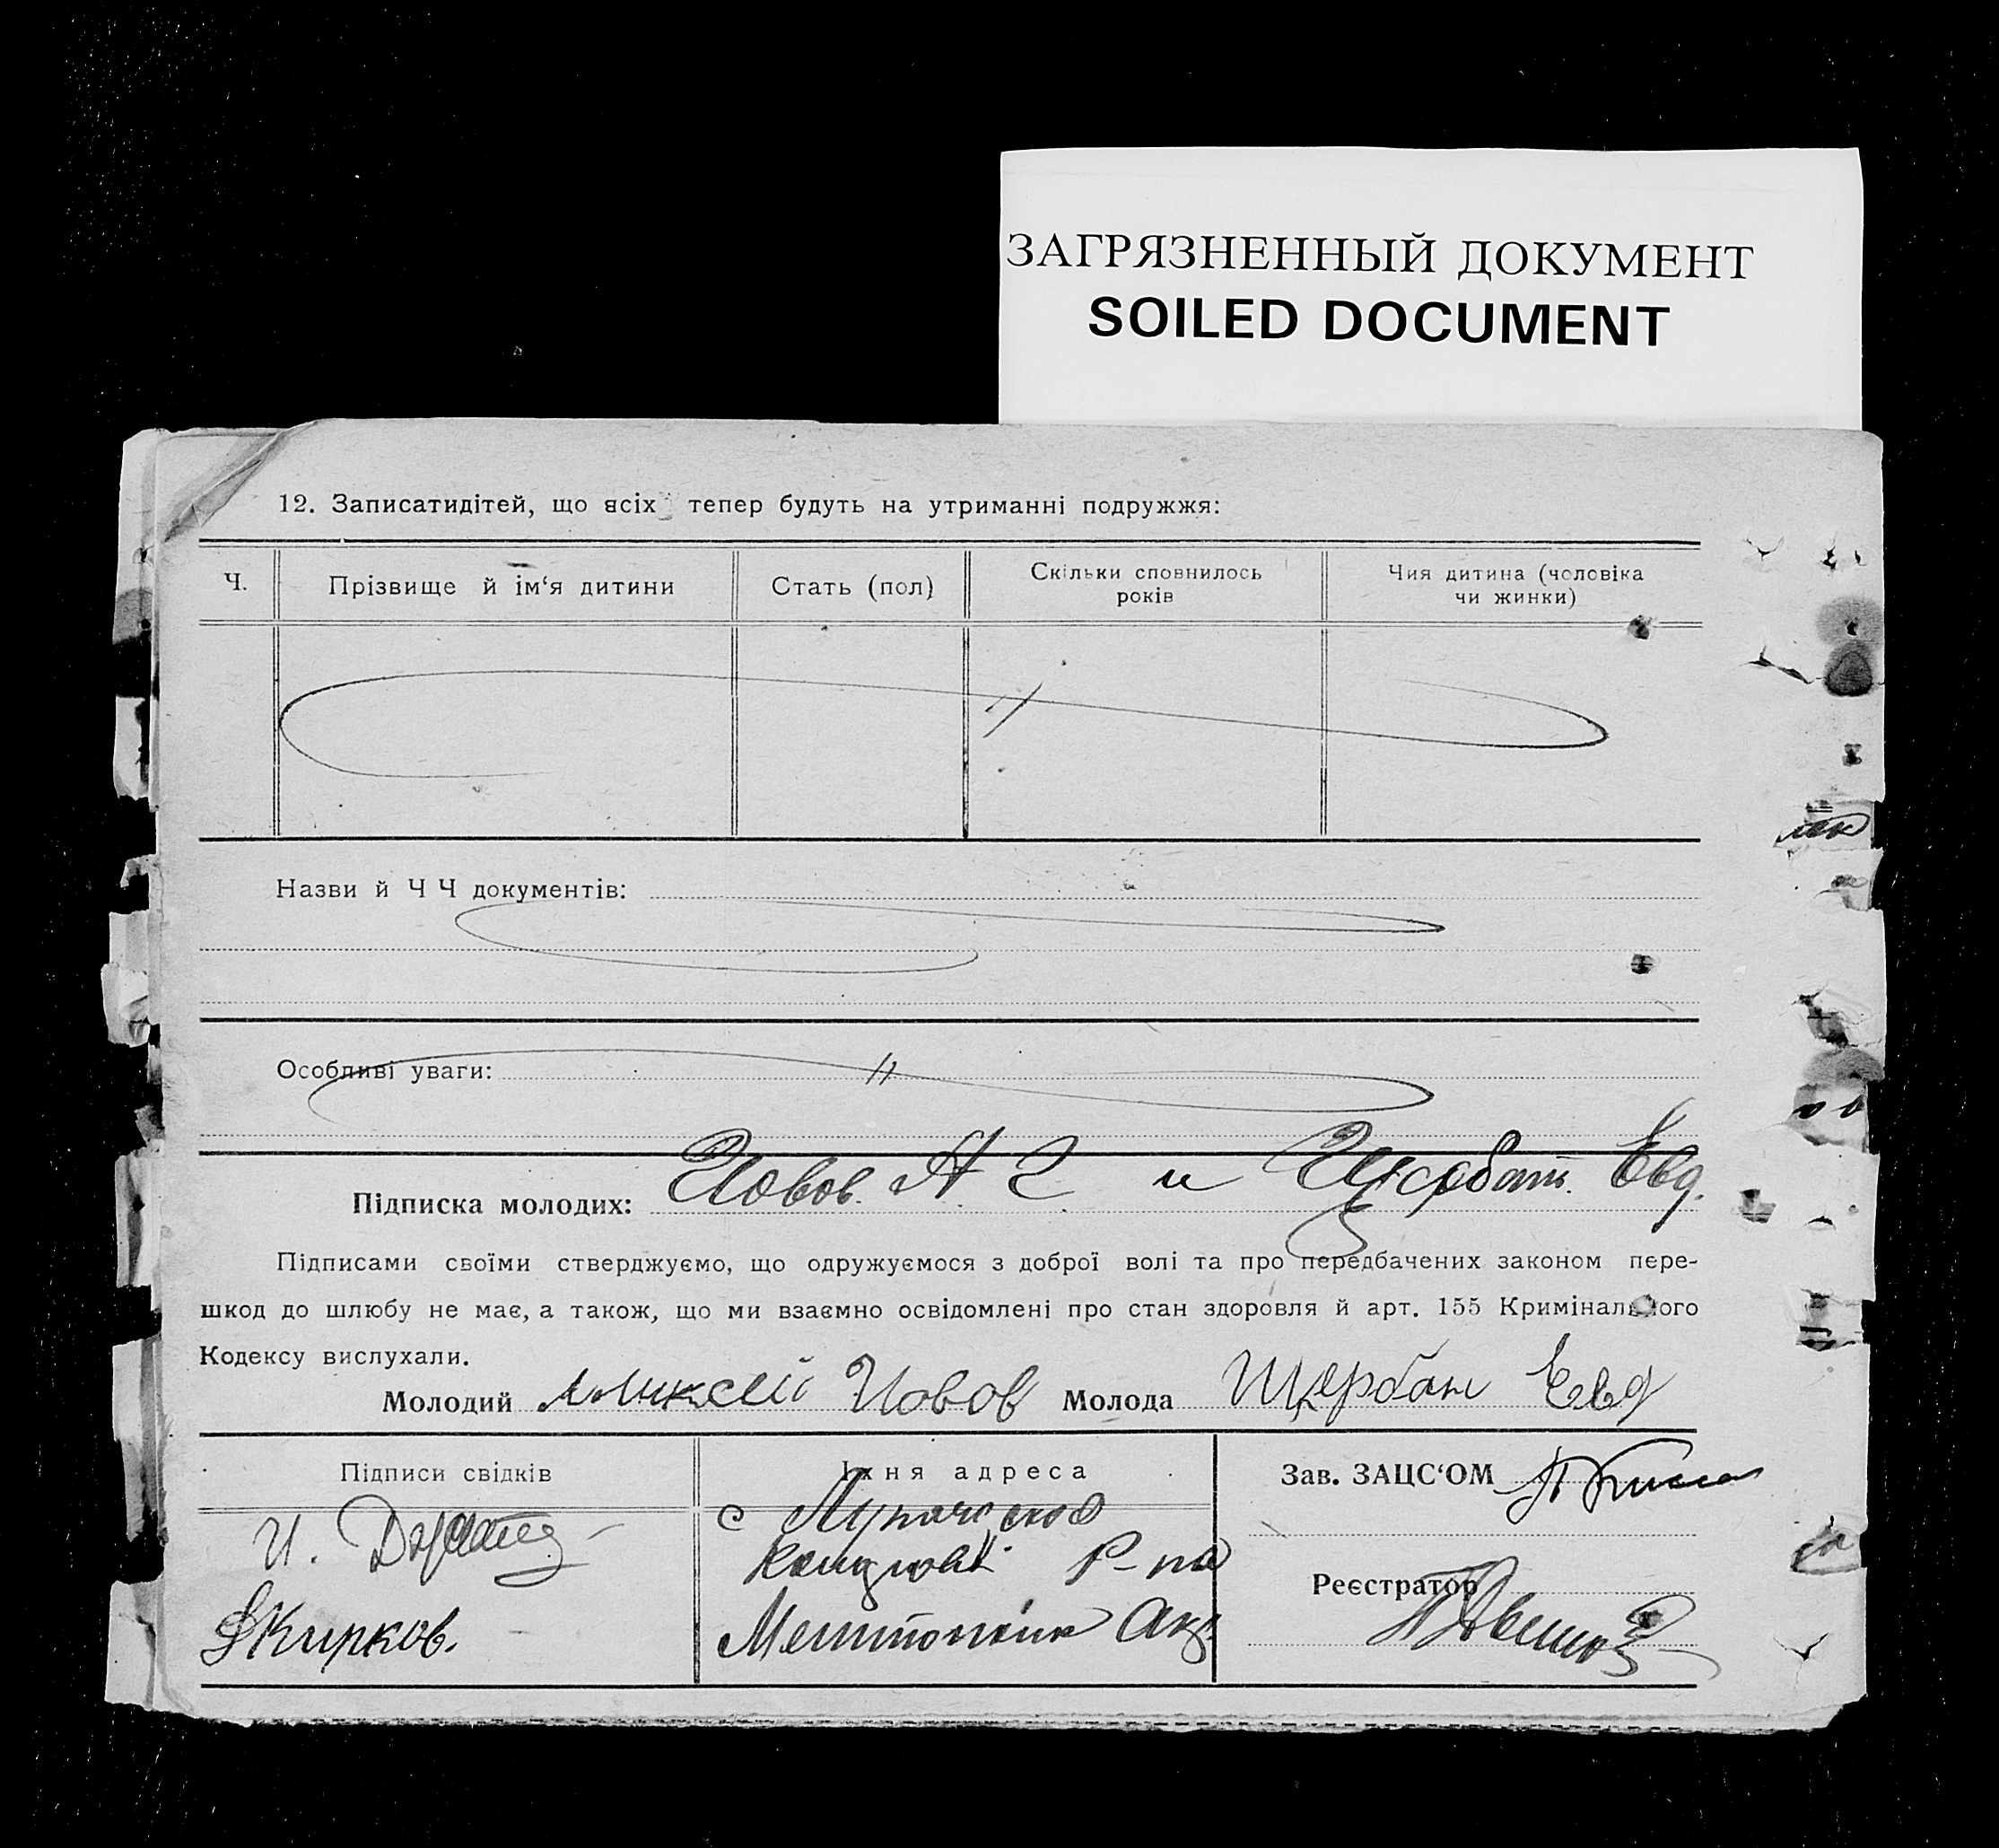 ЗАГРЯЗНЕННЫЙ ДОКУМЕНТ
SOILED DOCUMENT
12. Записатидітей, що всіх тепер будуть на утриманні подружжя:
Ч.
Прізвище й ім‘я дитини
Стать (пол)
Скільки сповнилось
років
Чия дитина (чоловіка
чи жинки)
Назви й Ч Ч документів:
Особливі уваги:
Підписка молодих: Иовов А и Евд.
Підписами своїми стверджуємо, що одружуємося з доброї волі та про передбачених законом пере-
шкод до шлюбу не має, а також, що ми взаємно освідомлені про стан здоровля й арт. 155 Кримінального
Кодексу вислухали.
Молодий Иовов Молода Щербан Евд
Підписи свідків
Їхня адреса
Зав. ЗАЦС‘ОМ
И.
с
Р-на
Реєстратор
Кирков.